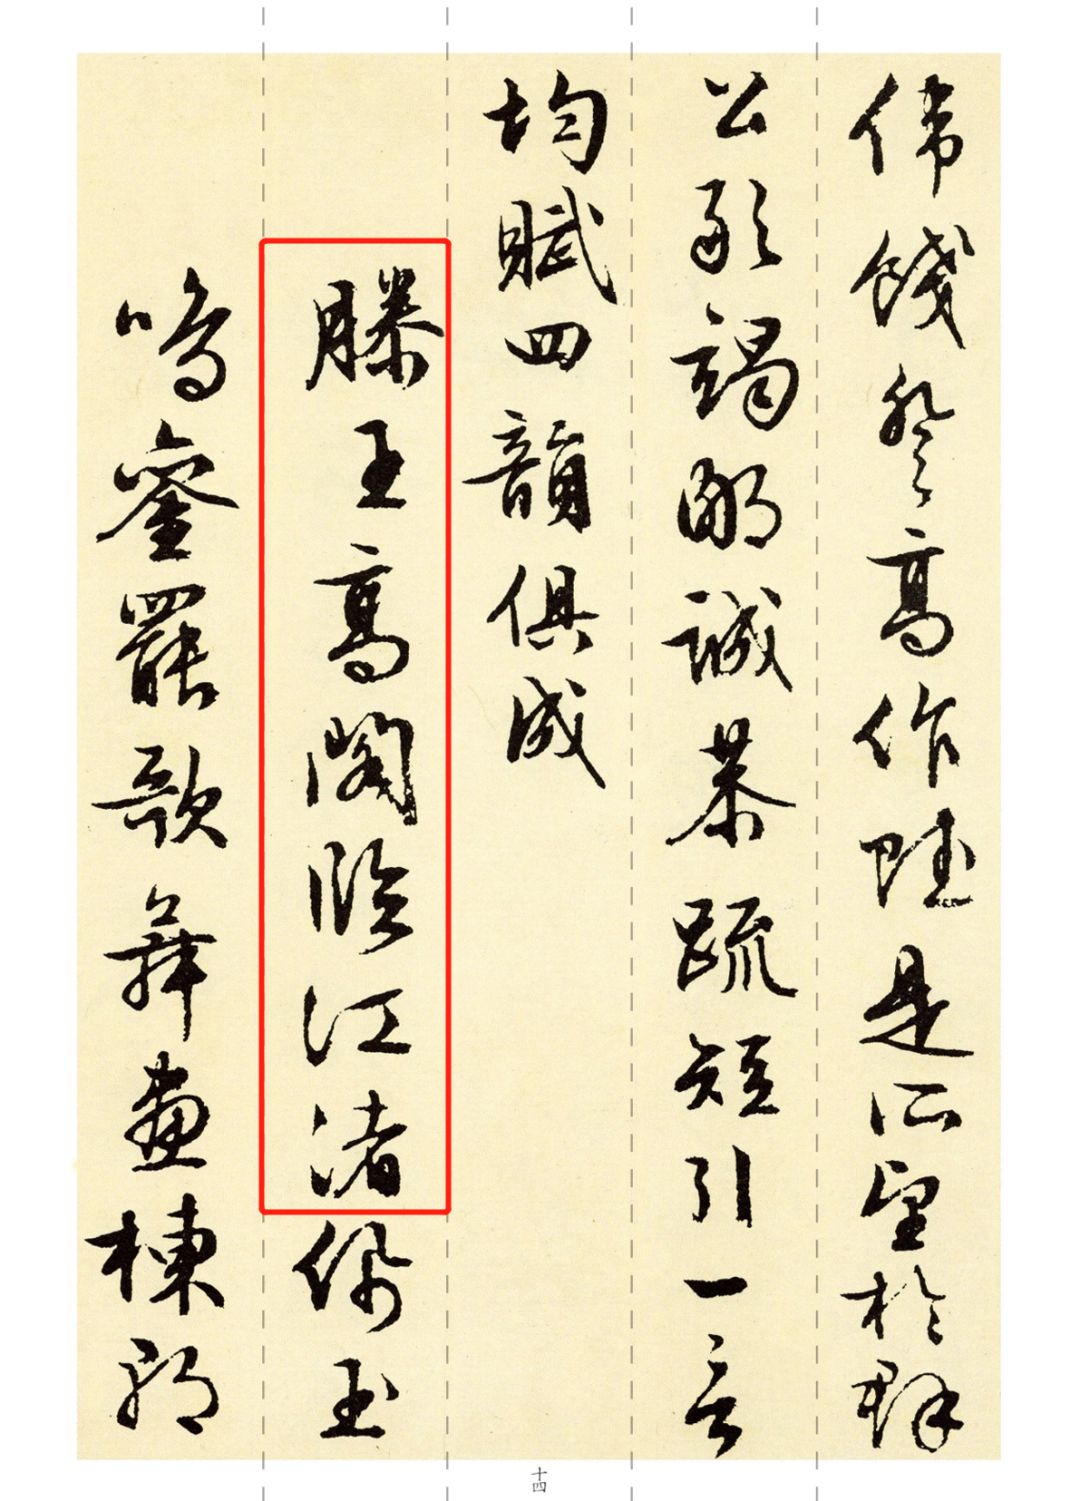 偉餞登高作賦是所望於群
公敢竭鄙誠恭疏短引一言
均賦四韻俱成
滕王高閣臨江渚佩玉
鳴鑾罷歌舞畫棟朝
十四